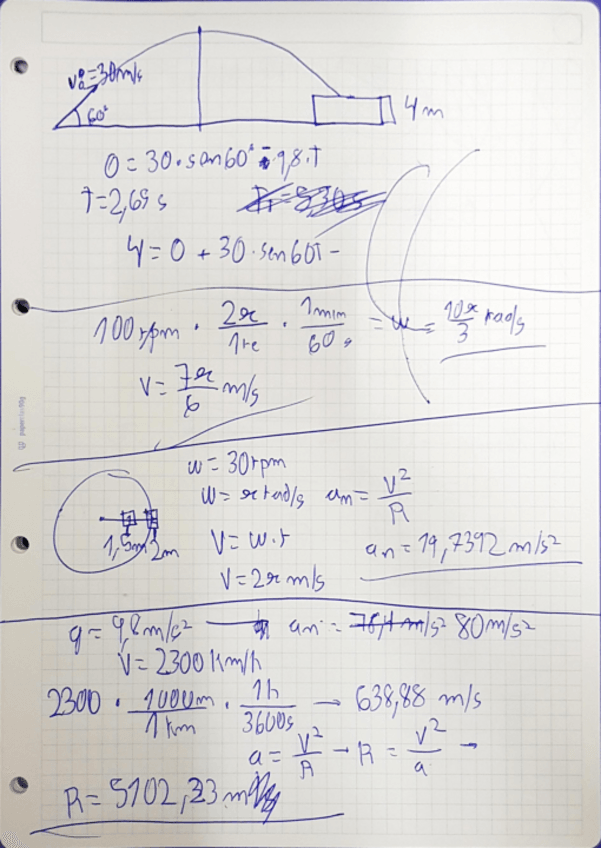 v₀=30m/s
60°
4m
0=30·sen60°-9,8·T
T=2,65 s
4=0+30·sen60T-
100rpm · 2π/1re · 1min/60s = w = 10π/3 rad/s
V=7π/6 m/s
w=30rpm
w=π rad/s an=V²/R
1,5m 2m
V=w·r
an=19,7392 m/s²
V=2π m/s
g=9,8m/s² → an= 80m/s²
V=2300 Km/h
2300 · 1000m/1Km · 1h/3600s → 638,88 m/s
a=V²/R → R=V²/a →
R=5102,23m